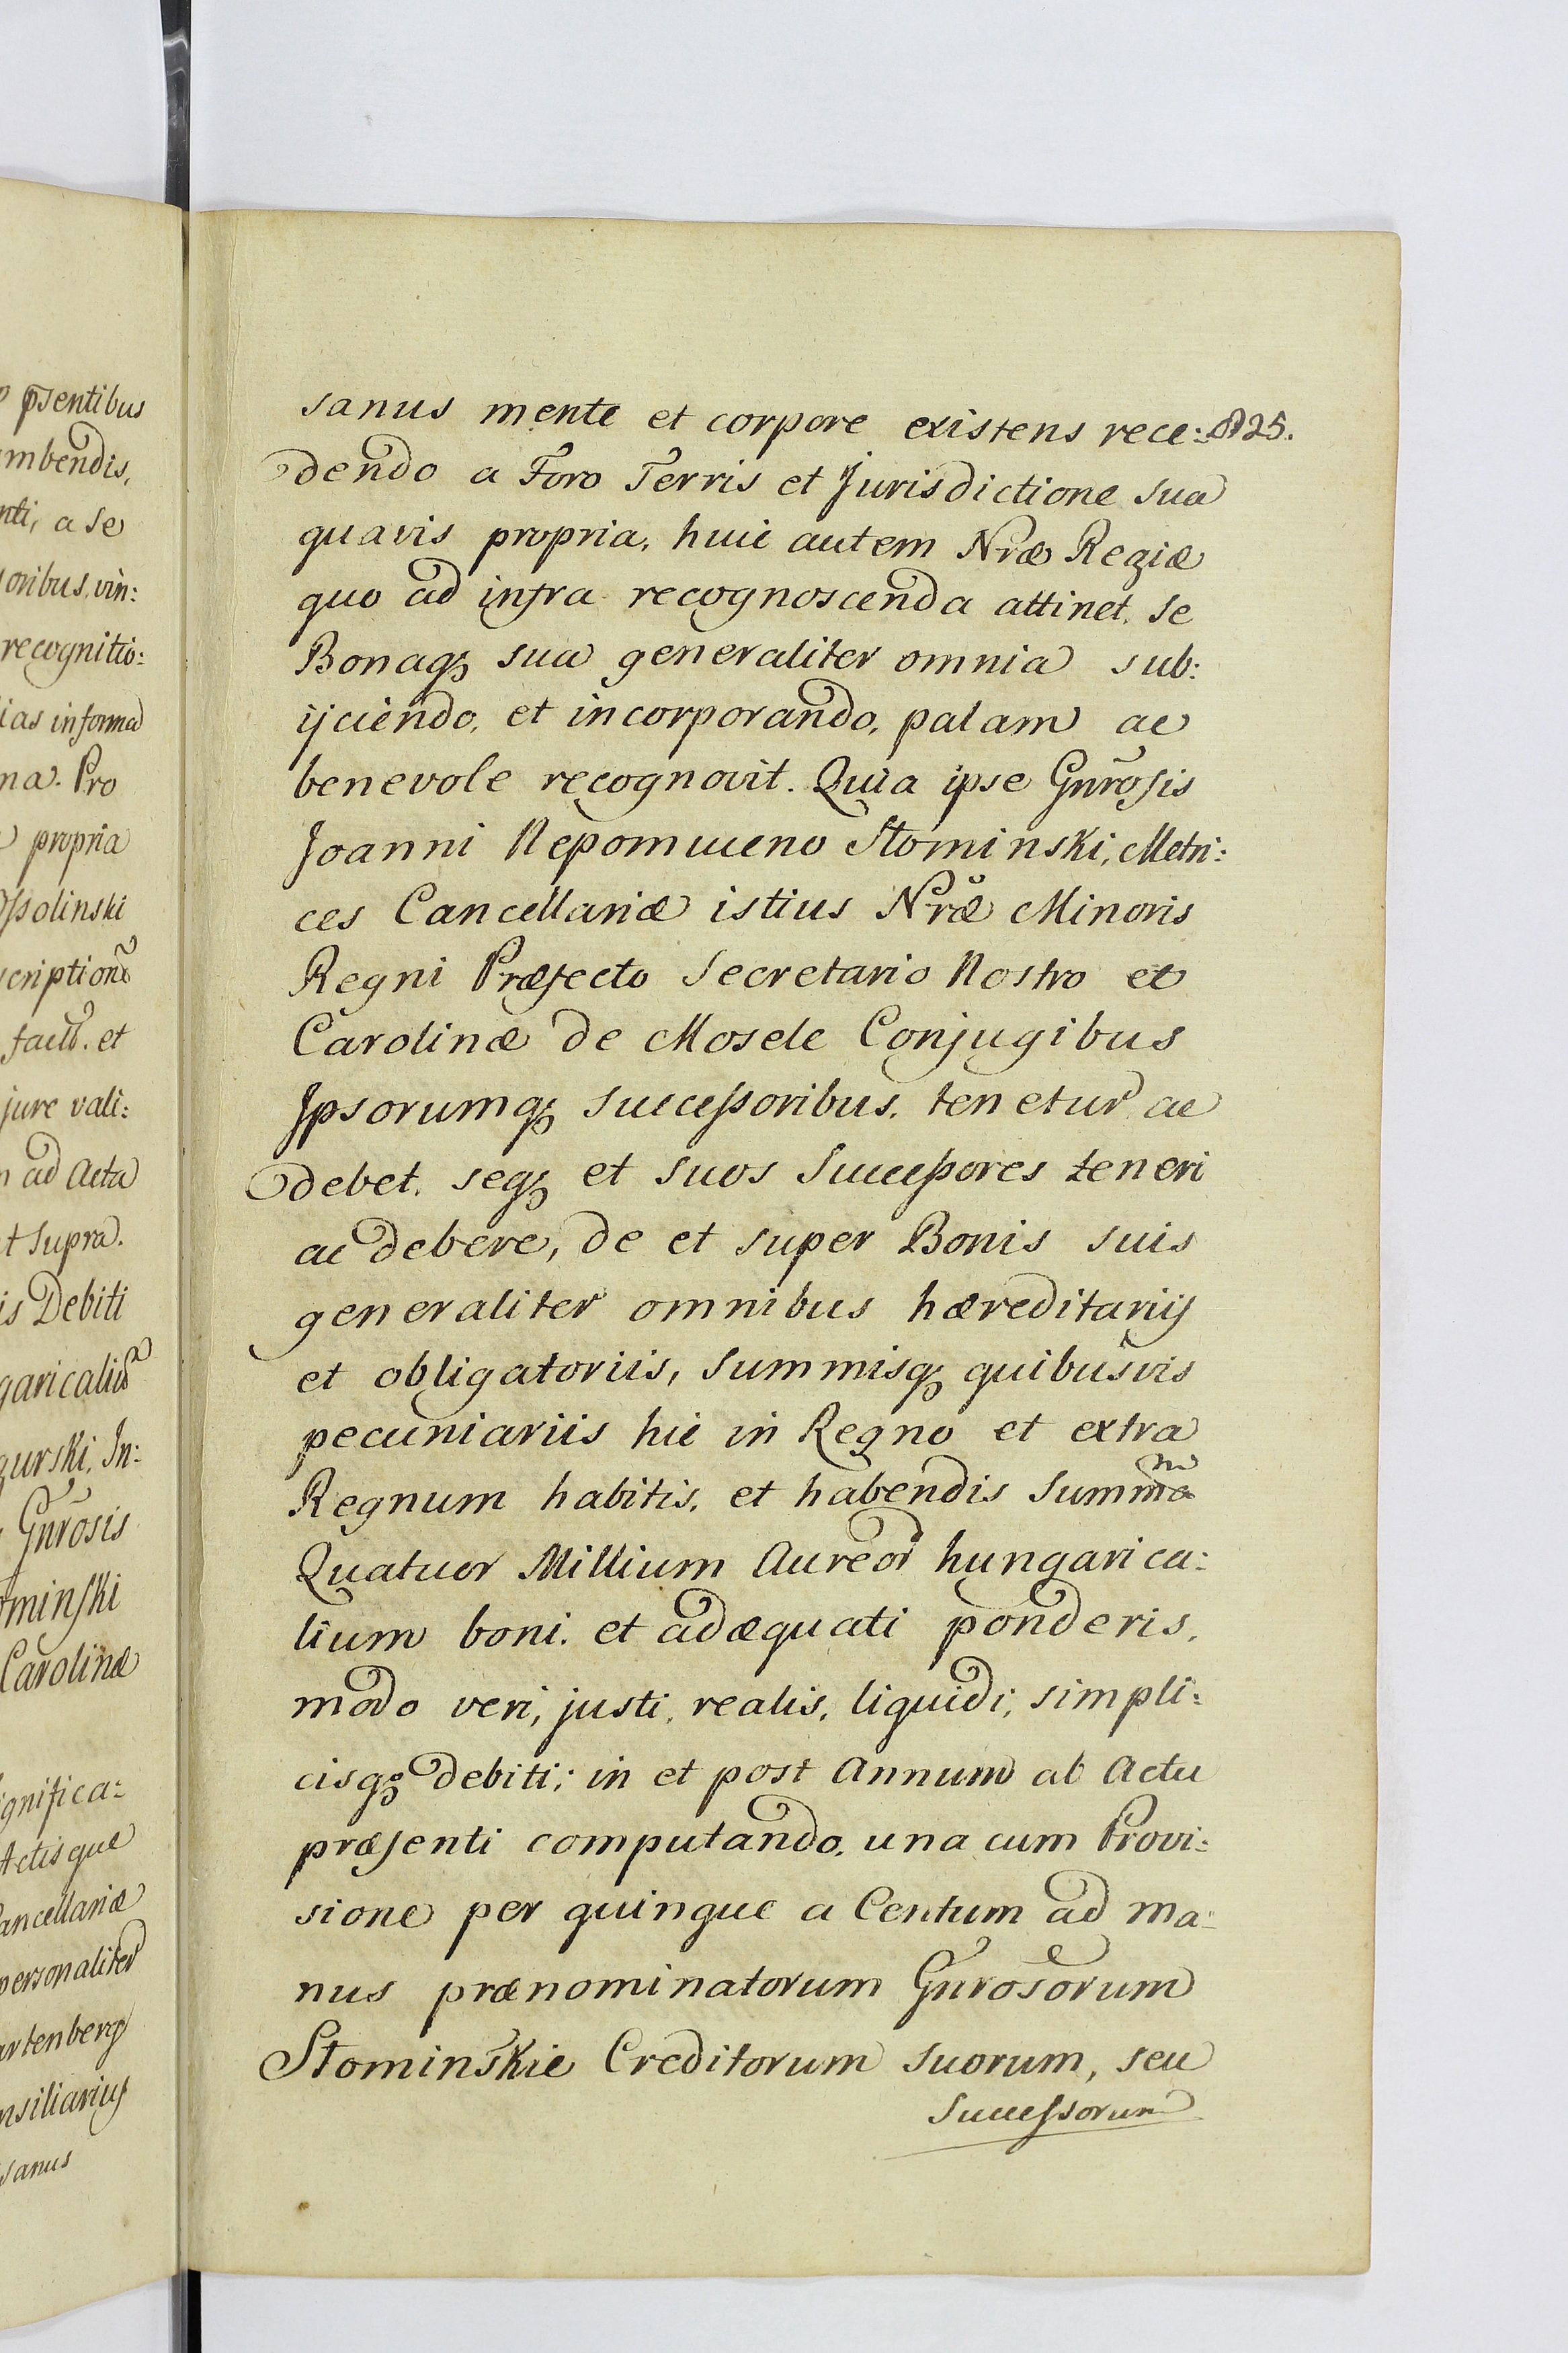 psentibus
mbendis,
nti, a se
oribus, vin:
recognitio:
ias in forma
na. Pro
propria
ssolinski
scriptione
factt. et
jure vali:
ad Acta
t supra.
is Debiti
garicaliu
gurski, In:
Gnrosis
ominski
Carolinæ
ignifica:
Actisque
Cancellariæ
personaliter
artenberg
nsiliarius
sanus
sanus mente et corpore existens rece: 25.
dendo a Foro Terris et Jurisdictione sua
quavis propria, huic autem Nræ Regiæ
quo ad infra recognoscenda attinet, se
Bonaqꝫ sua generaliter omnia sub:
ijciendo, et incorporando, palam ac
benevole recognovit. Quia ipse Gnrosis
Joanni Nepomuceno Słominski, Metri:
ces Cancellariæ istius Nræ Minoris
Regni Præfecto Secretario Nostro et
Carolinæ de Mosele Conjugibus
Ipsorumqꝫ successoribus, tenetur ac
debet, seqꝫ et suos Successores teneri
ac debere, de et super Bonis suis
generaliter omnibus hæreditariis
et obligatoriis, summisqꝫ quibusvis
pecuniariis hic in Regno et extra
Regnum habitis, et habendis Summa
Quatuor Millium Aureor hungarica:
lium boni, et adæquati ponderis,
modo veri, justi, realis, liquidi, simpli:
cisqꝫ debiti; in et post Annum ab Actu
præsenti computando, una cum Provi:
sione per quinque a Centum ad ma:
nus prænominatorum Gnrosorum
Słominskie Creditorum suorum, seu
Successorum